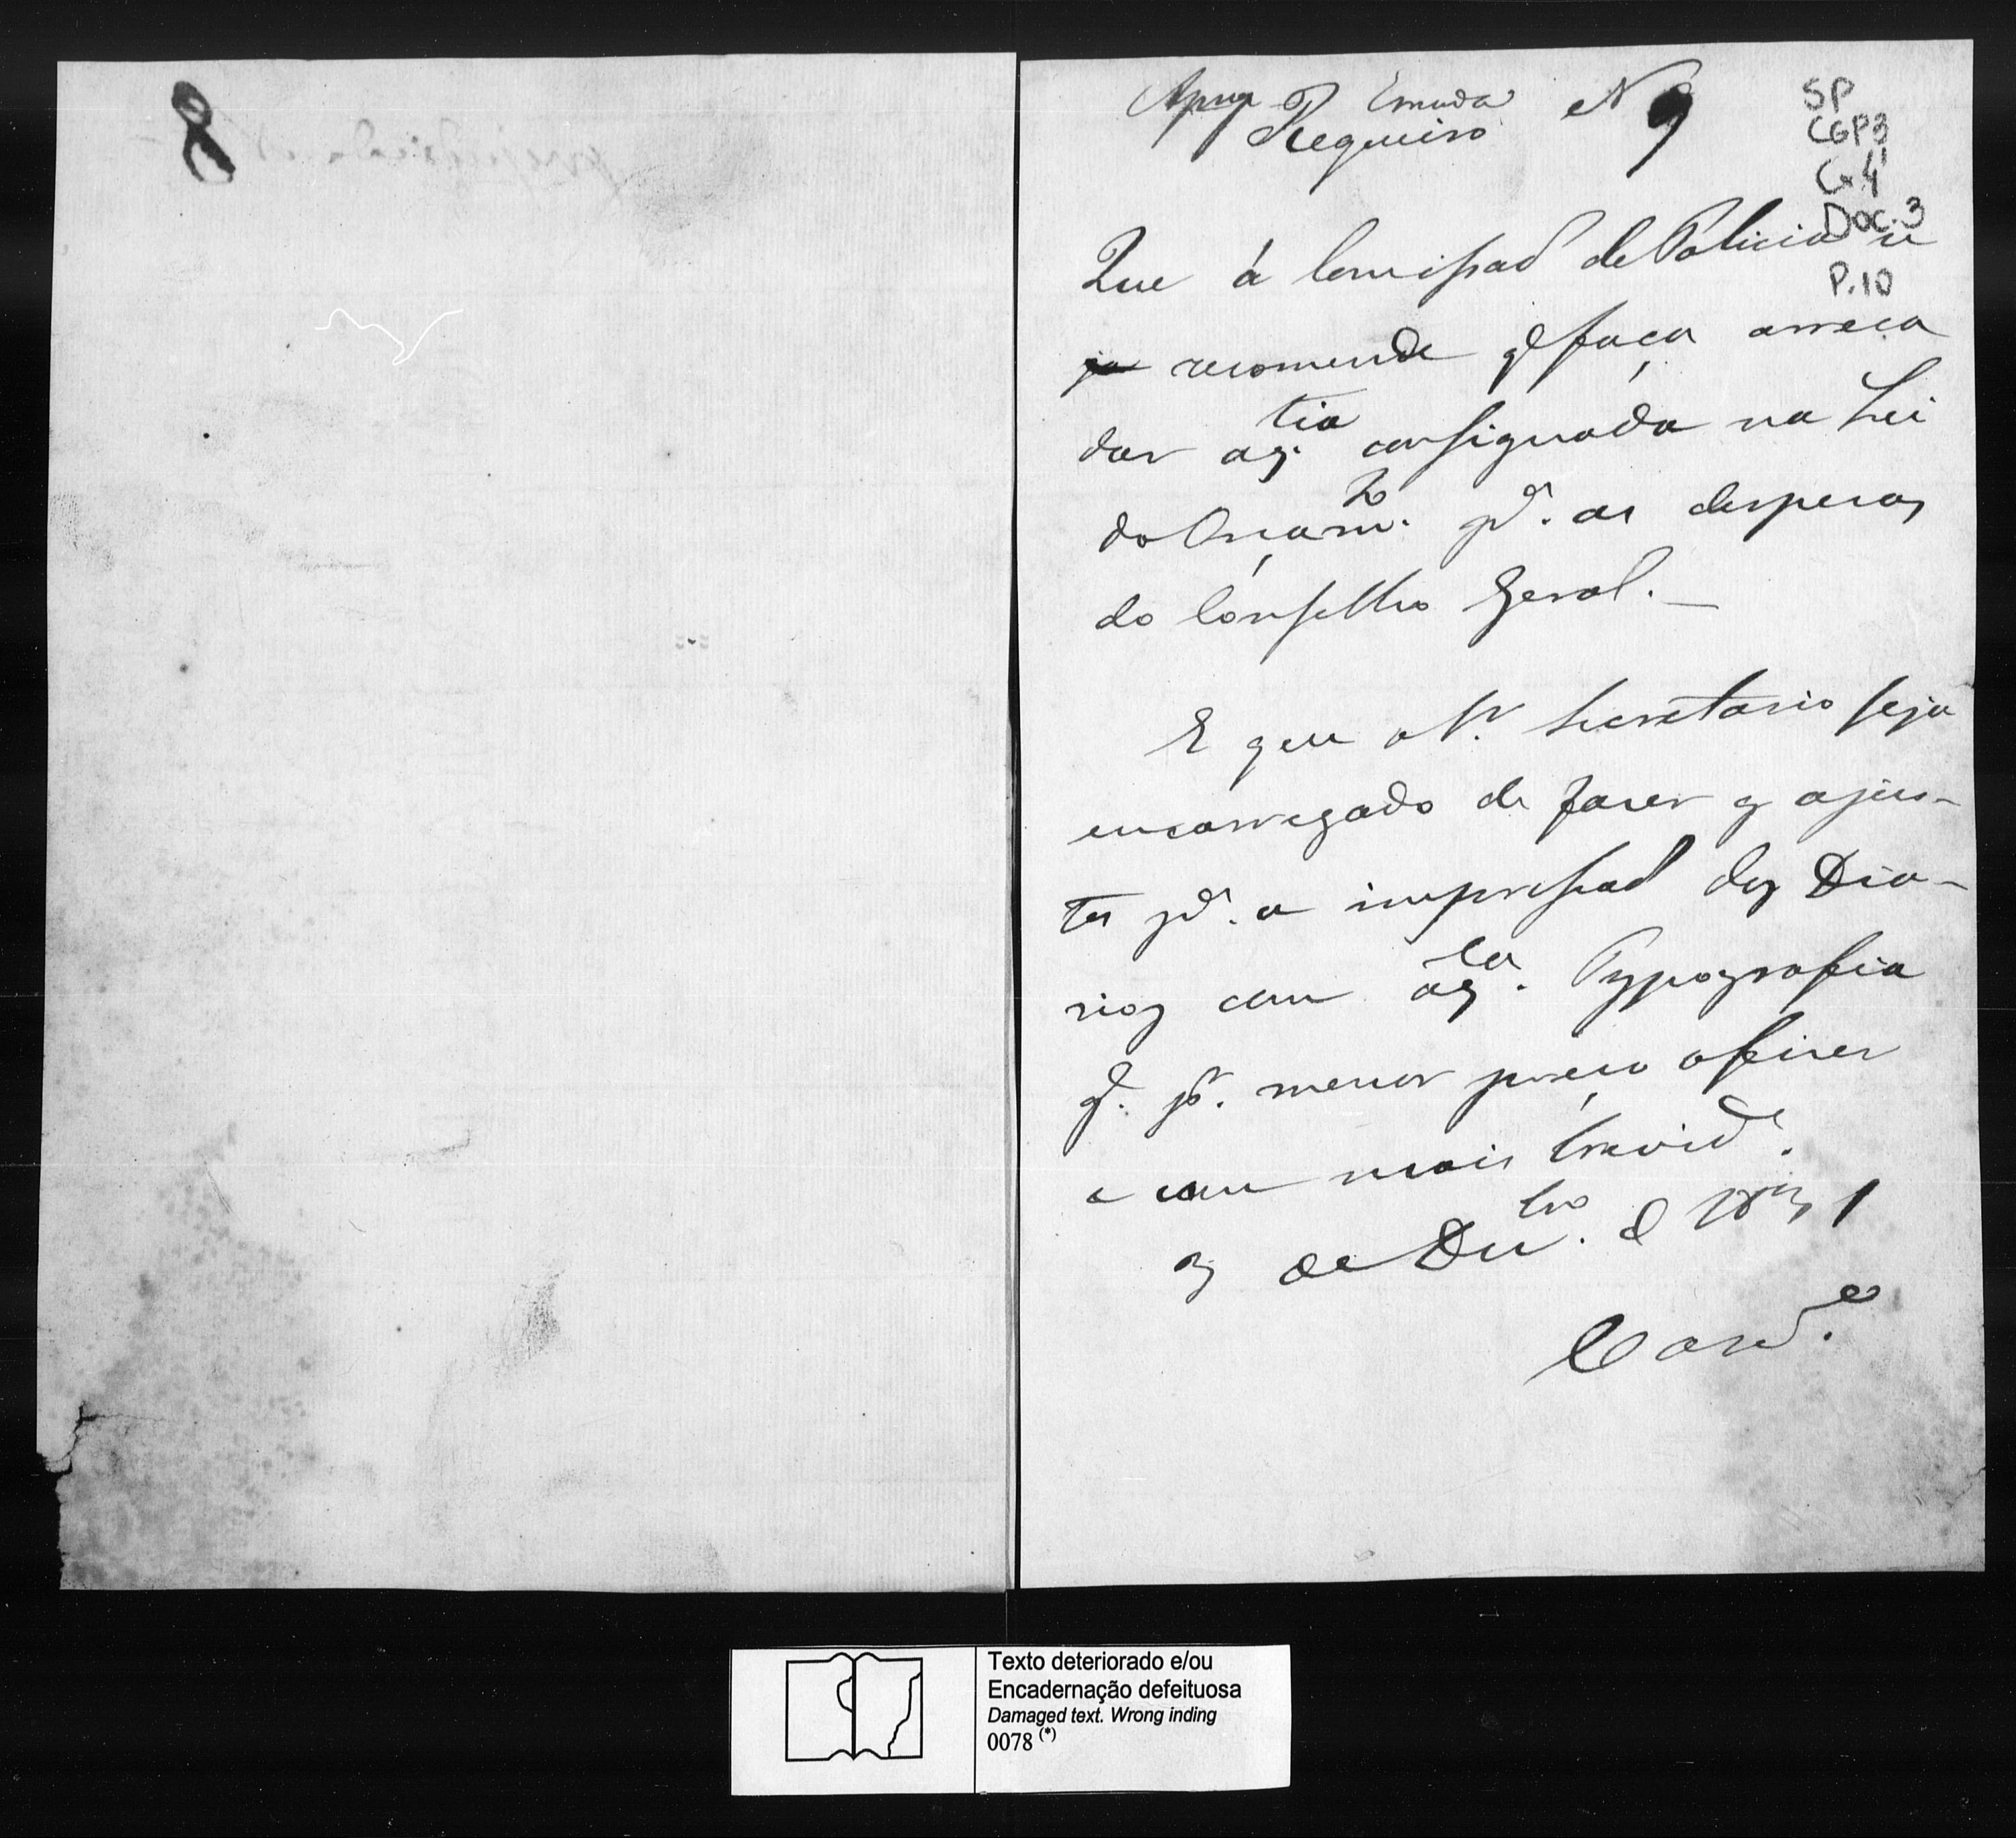 8
Emenda N 9
Requeiro
SP
CGP3
Cx4
Doc. 3
P.10
Que á Comissaõ de Policia se
recomende q̃ faça arreca
dar a q.tia consignada na Lei
do Orçam.to p.a as despezas
do Conselho Geral.—
E que o Sr. Secretario seja
encarregado de fazer os ajus-
tes p.a a impressaõ dos Dia-
rios com aq.la Typografia
q̃. p.r menor preço o fizer
e com mais brevid.e
3 de Dez.bro d 1831
Card.o
Texto deteriorado e/ou
Encadernação defeituosa
Damaged text. Wrong inding
0078 (*)